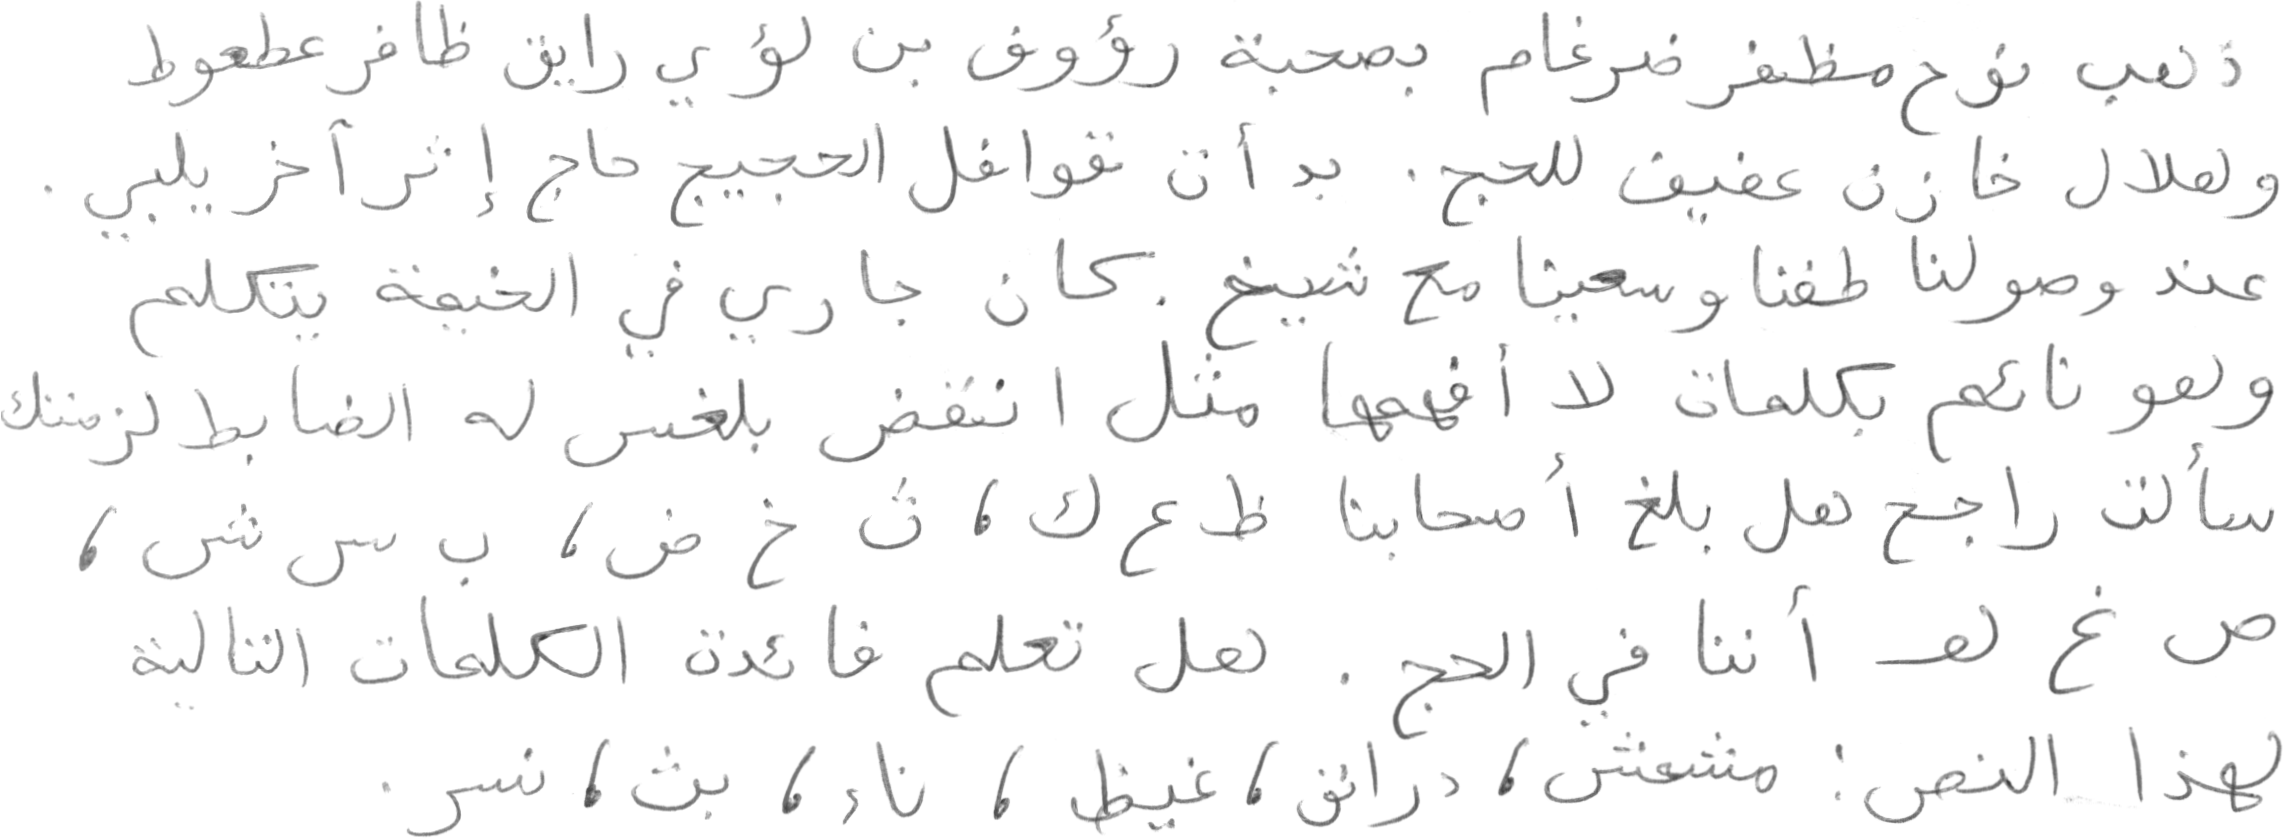 ذهب نوح مظفر ضرغام بصحبة رؤوف بن لؤي رايق ظافر عطعوط
وهلال خازن عفيف للحج. بدأت قوافل الحجيج حاج إثر آخر يلبي.
عند وصولنا طفنا وسعينا مع شيخ. كان جاري في الخيمة يتكلم
وهو نائم بكلمات لا أفهمها مثل انتفض بلغس له الضابط لزمننك
سألت راجح هل بلغ أصحابنا ظ ع ك، ث خ ض، ب س ش،
ص غ هـ أننا في الحج. هل تعلم فائدة الكلمات التالية
لهذا النص: مشمش، درائق، غيظ، ناء، بث، نسر.